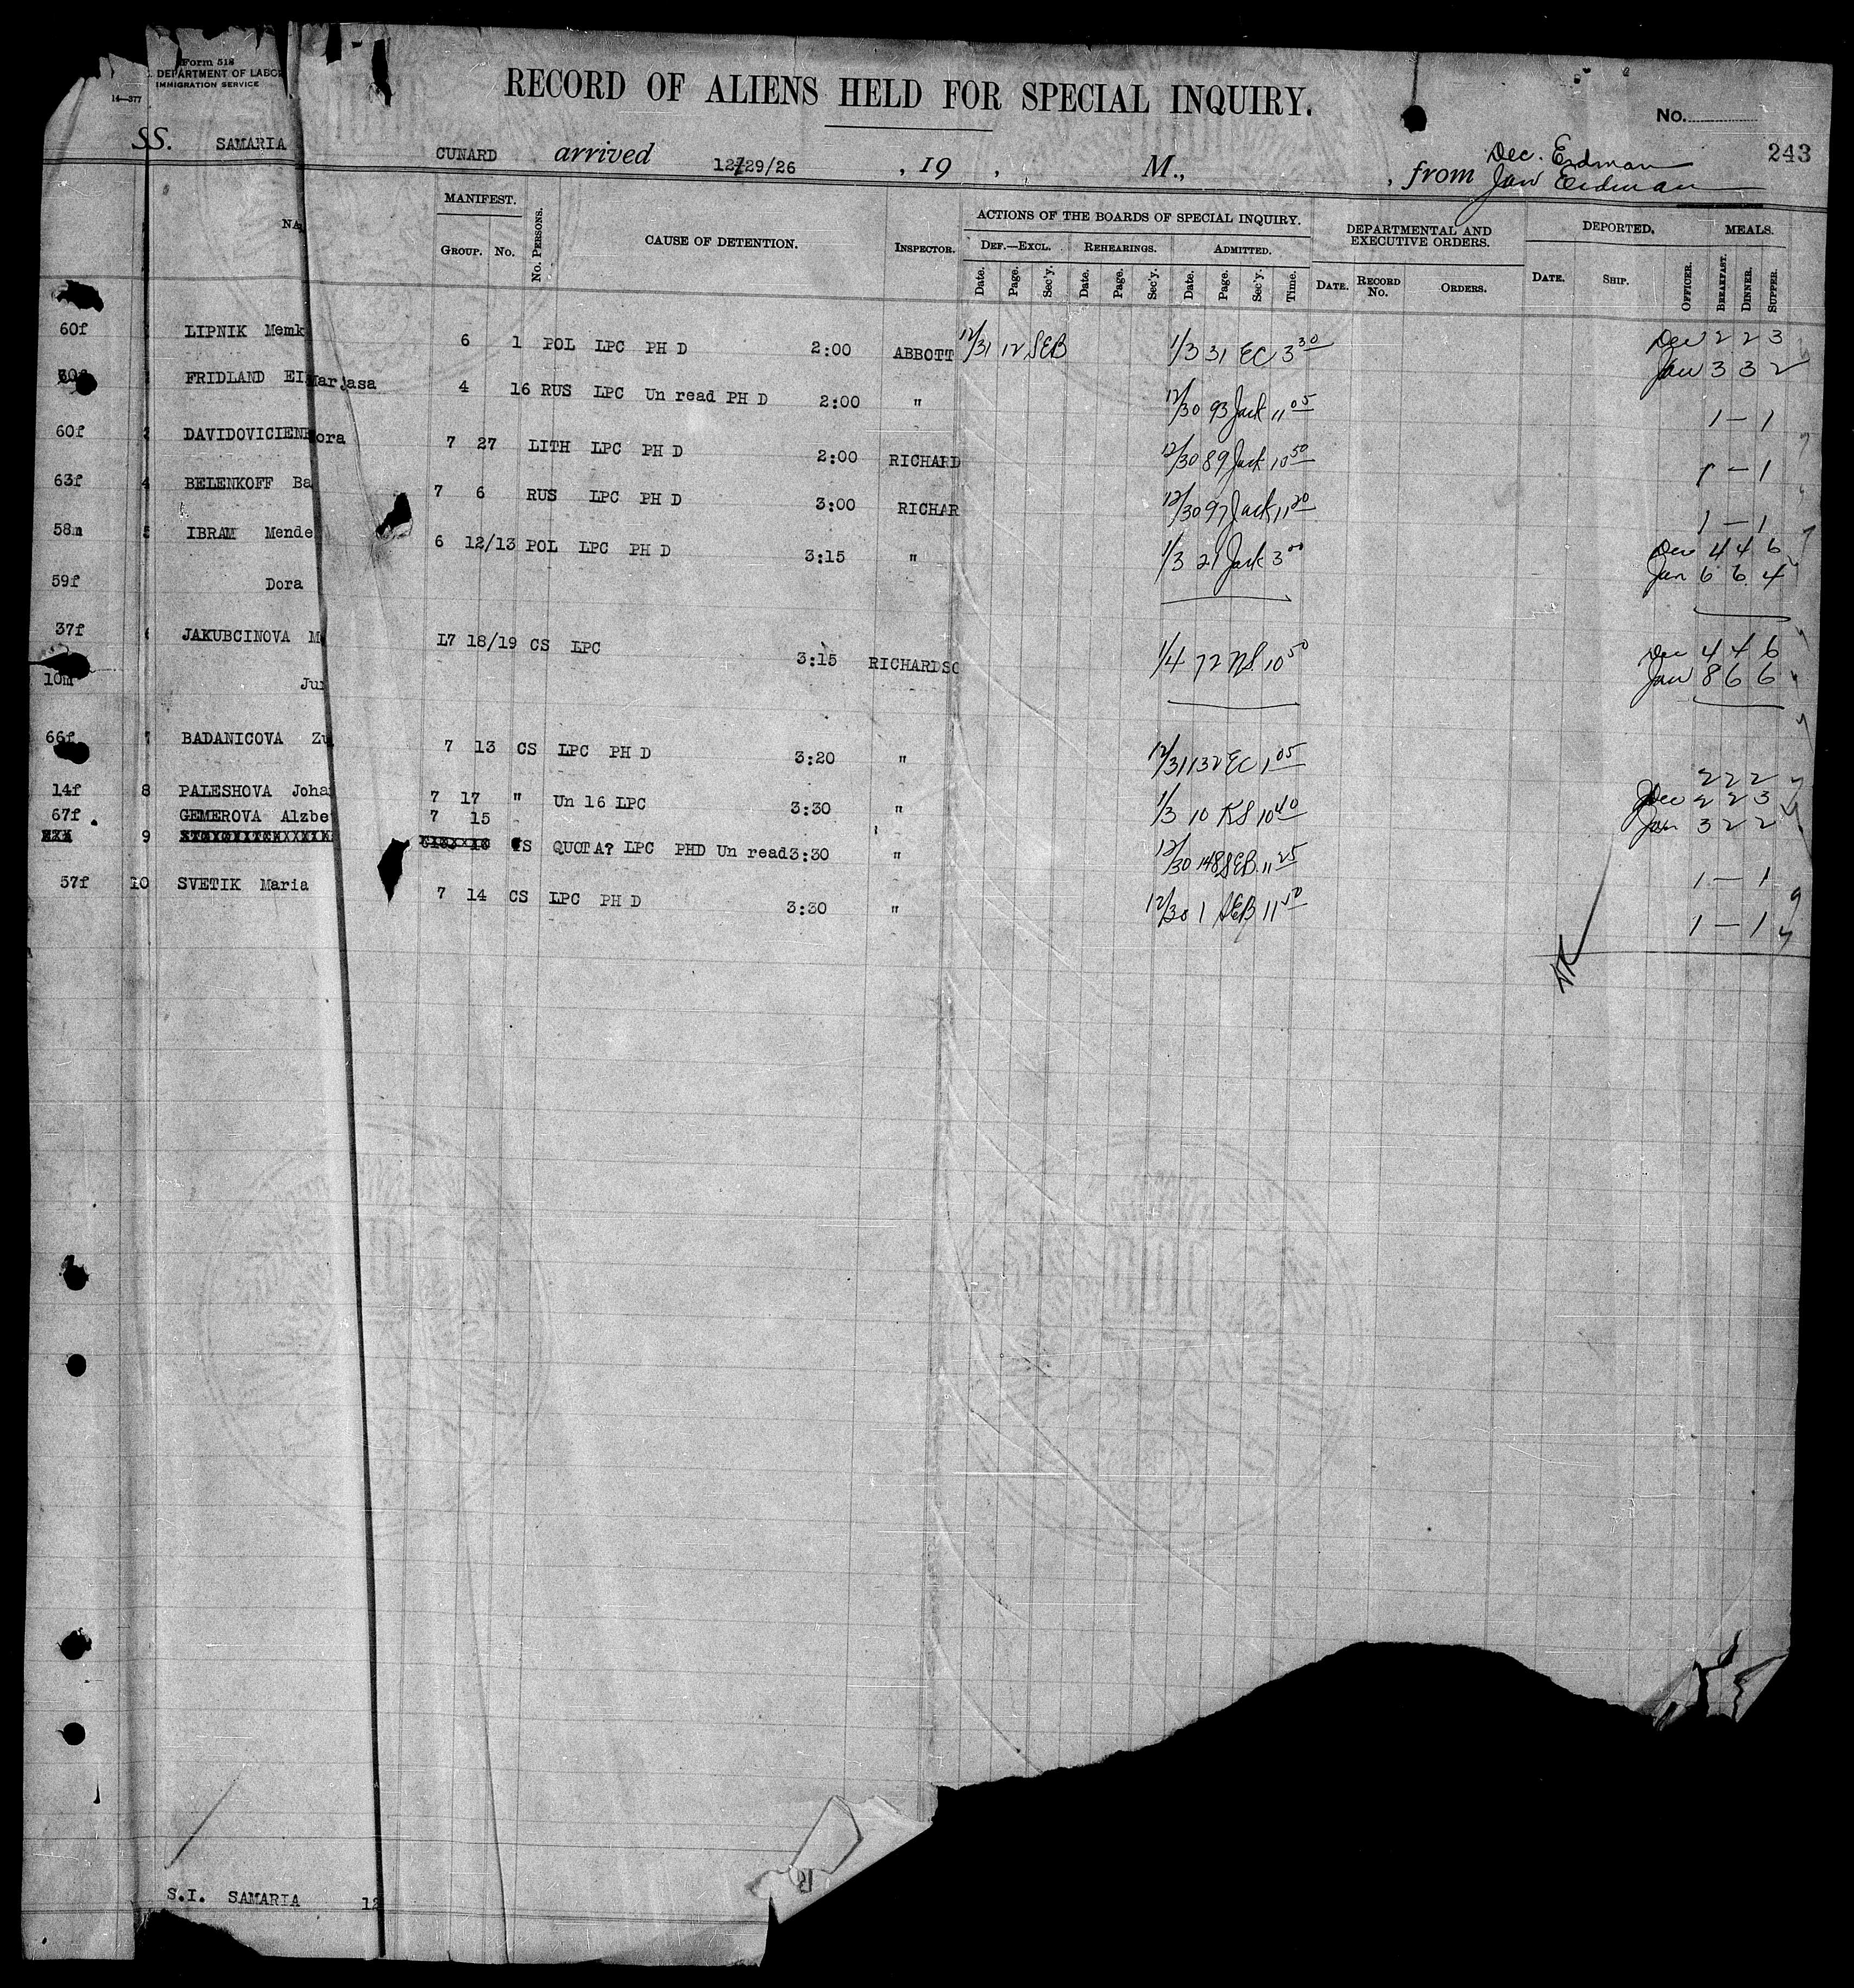 Form 518
DEPARTMENT OF LABOR
IMMIGRATION SERVICE
14—377
RECORD OF ALIENS HELD FOR SPECIAL INQUIRY.
No.
243
SS. SAMARIA CUNARD arrived 12/29/26 , 19 , M., , from Dec. Erdman
Jan Erdman
MANIFEST. No. PERSONS. CAUSE OF DETENTION. INSPECTOR. ACTIONS OF THE BOARDS OF SPECIAL INQUIRY. DEPARTMENTAL AND EXECUTIVE ORDERS. DEPORTED. MEALS.
GROUP. No. DEF.—EXCL. REHEARINGS. ADMITTED.
Date. Page. Sec'y. Date. Page. Sec'y. Date. Page. Sec'y. Time. DATE. RECORD No. ORDERS. DATE. SHIP. OFFICER. BREAKFAST. DINNER. SUPPER.
60f LIPNIK Memk 6 1 POL LPC PH D 2:00 ABBOTT 12/31 12 SEB 1/3 31 EC 3 30 Dec 2 2 3
Jan 3 3 2
FRIDLAND EI Marjasa 4 16 RUS LPC Un read PH D 2:00 " 12/30 93 Jack 11 05 1 — 1
60f DAVIDOVICIEN ora 7 27 LITH LPC PH D 2:00 RICHARD 12/30 89 Jack 10 50 1 — 1
63f 4 BELENKOFF Ba 7 6 RUS LPC PH D 3:00 RICHAR 12/30 97 Jack 11 20 1 — 1
58m 5 IBRAM Mende 6 12/13 POL LPC PH D 3:15 " 1/3 21 Jack 3 00 Dec 4 4 6
59f Dora Jan 6 6 4
37f JAKUBCINOVA M L7 18/19 CS LPC 3:15 RICHARDSO 1/4 72 NS 10 50 Dec 4 4 6
10m Jur Jan 8 6 6
66f 7 BADANICOVA Zu 7 13 CS LPC PH D 3:20 " 12/31 132 EC 1 05 2 2 2
14f 8 PALESHOVA Joha 7 17 " Un 16 LPC 3:30 " 1/3 10 KS 10 40 Dec 2 2 3
Jan 3 2 2
67f GEMEROVA Alzbe 7 15
9 CS QUOTA? LPC PHD Un read 3:30 " 12/30 148 SEB 11 25 1 — 1
57f 10 SVETIK Maria 7 14 CS LPC PH D 3:30 " 12/30 1 SEB 11 1 — 1
S.I. SAMARIA 12